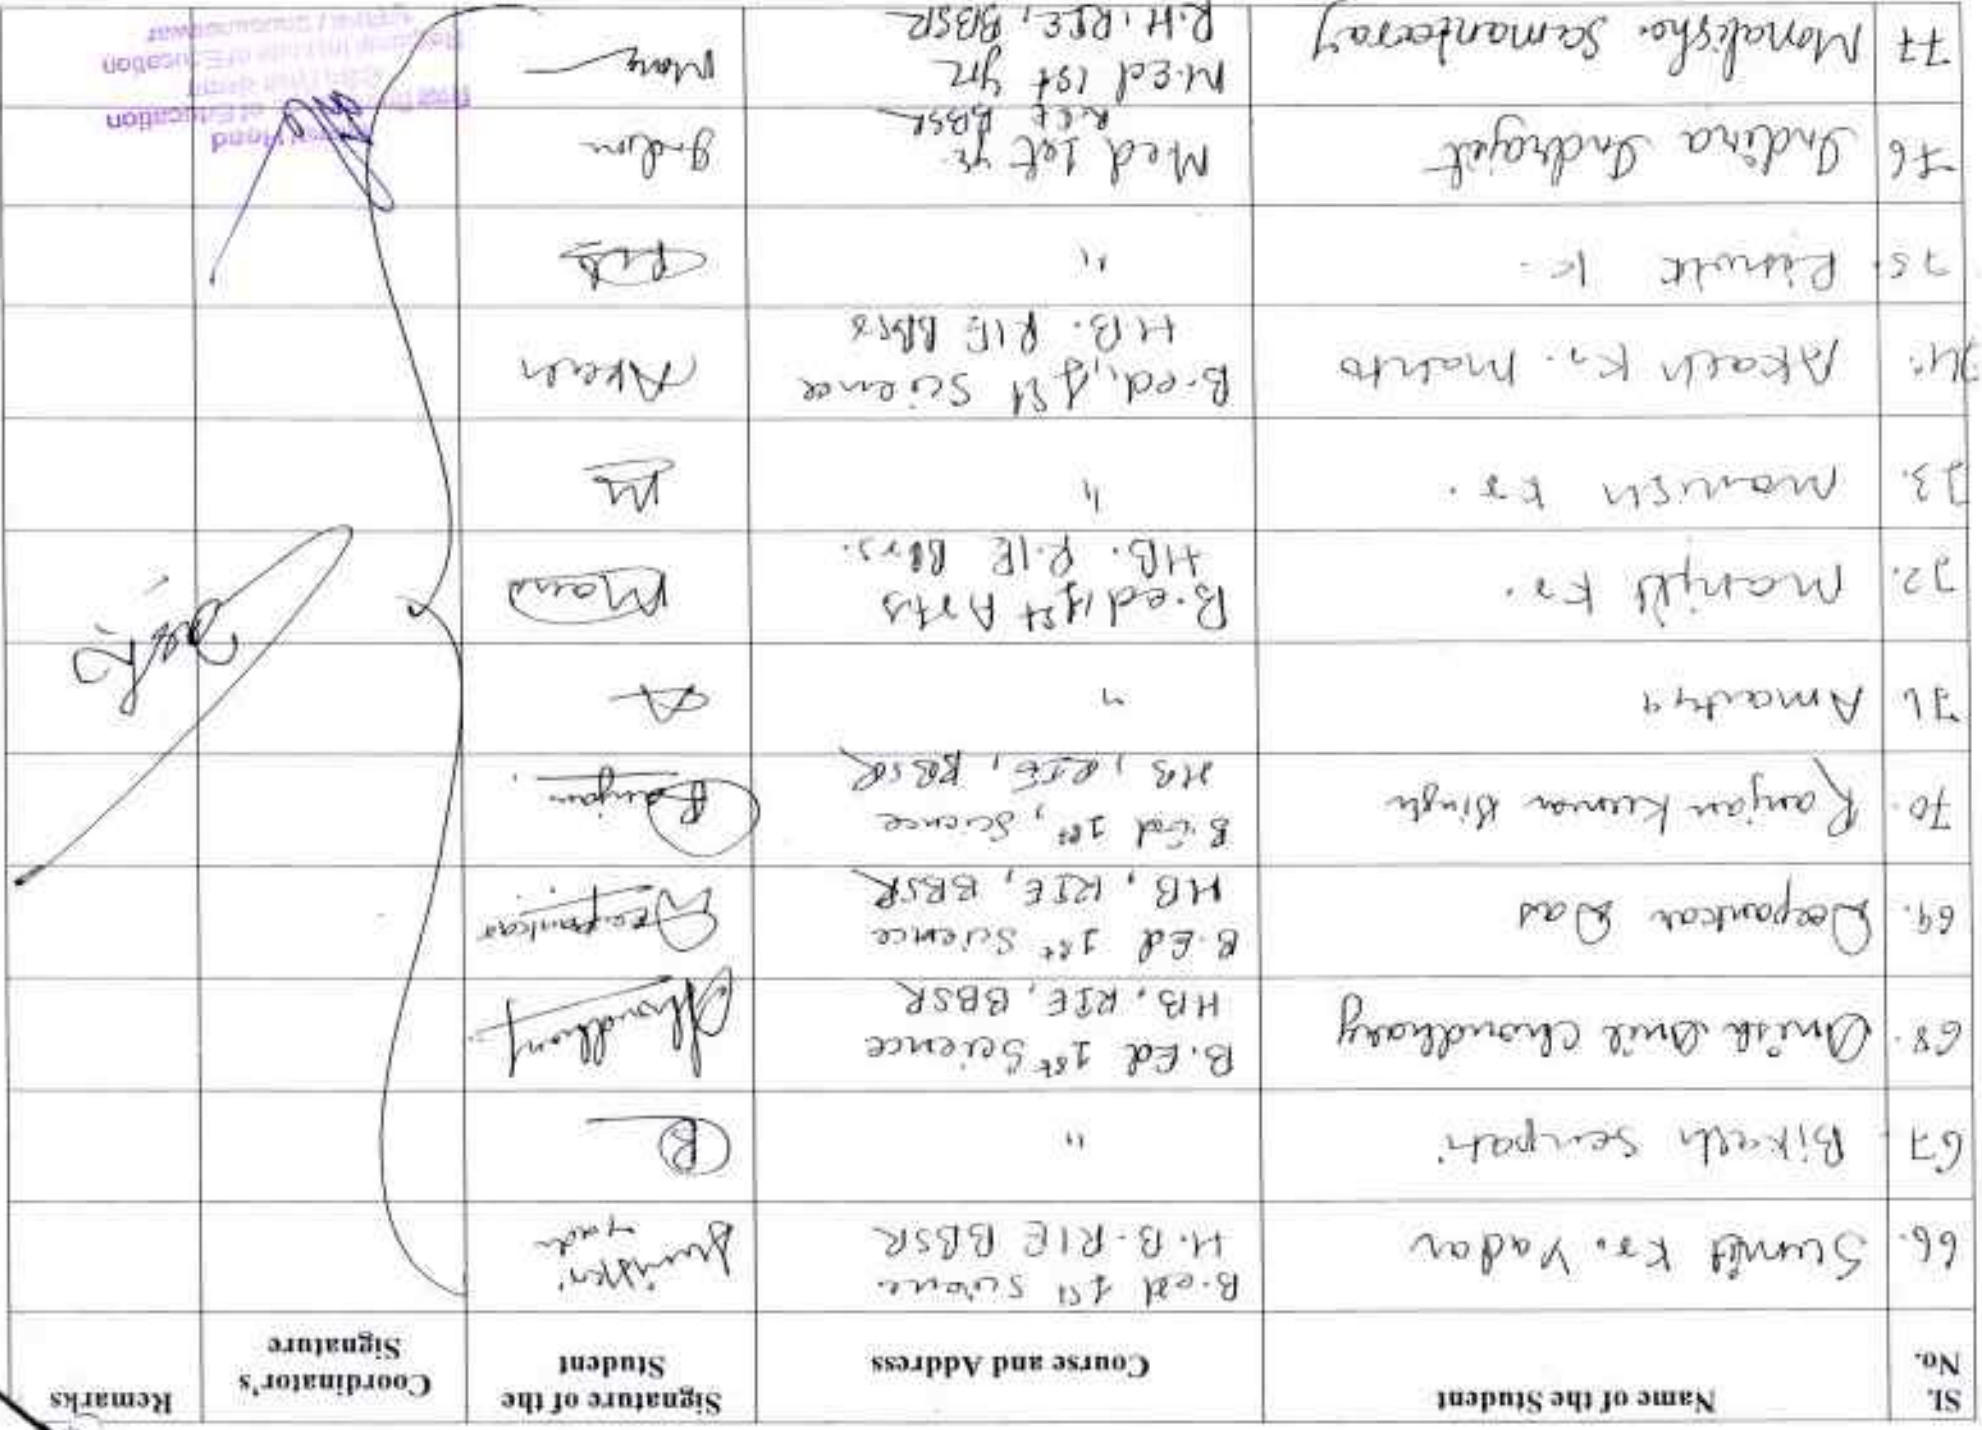 Sl. No.
Name of the Student
Course and Address
Signature of the Student
Coordinator's Signature
Remarks
66. Sumit Kr. Yadav
B.ed 1st Science
H.B. RIE BBSR
67. Bikash Senpati "
68. Anish Anil Choudhary
B.Ed 1st Science
HB, RIE, BBSR
Choudhary
69. Deepankar Das
B.Ed 1st Science
HB, RIE, BBSR
Deepankar
70. Ranjan Kumar Singh
B.Ed 1st, Science
HB, RIE, BBSR
Ranjan
71. Amartya "
72. Manjit Kr.
B.ed 1st Arts
HB. RIE BBrs.
73. Manish Kr. "
74. Akash Kr. Mahto
B.ed, 1st Science
H.B. RIE BBrs
Akash
75. "
76 Indira Indrajit
Med 1st yr.
RIE BBSR
77 Monalisha Samantaray
M.Ed 1st yr
R.H, RIE, BBSR
Head
of Education
of Education